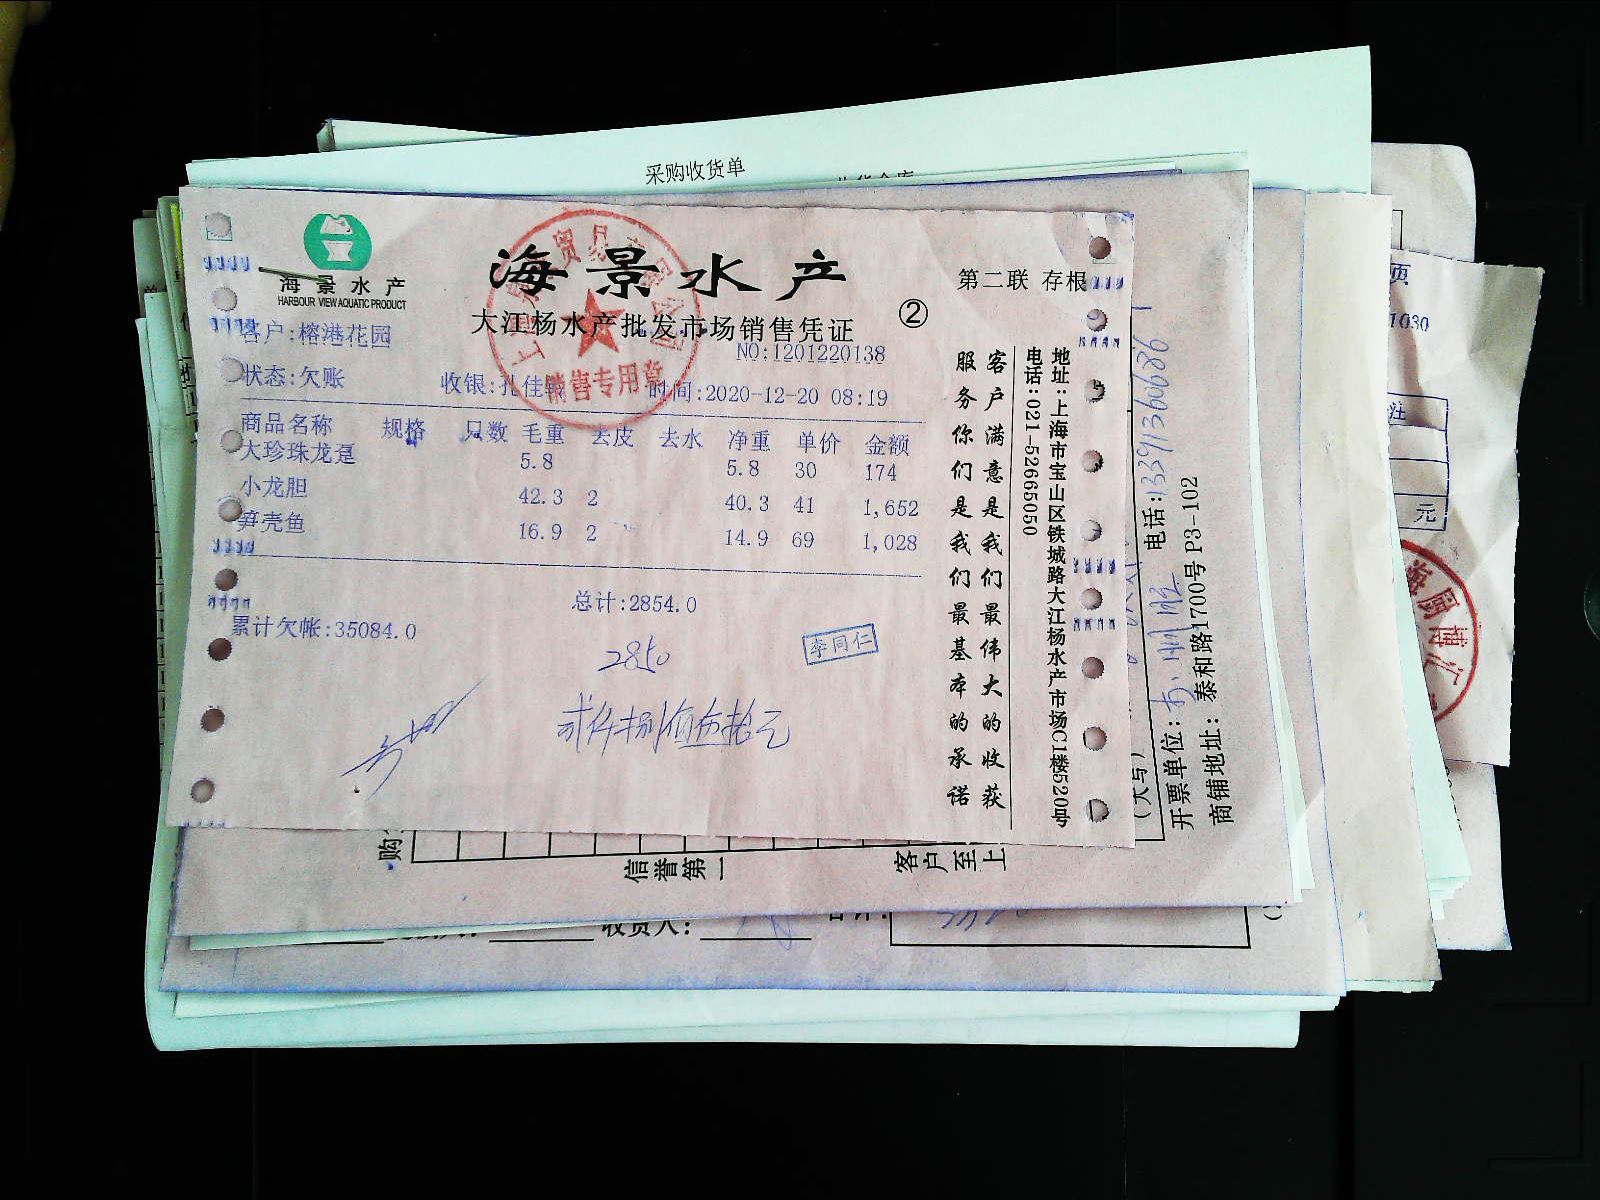 采购收货单
海景水产
HARBOUR VIEW AQUATIC PRODUCT
海景水产
大江杨水产批发市场销售凭证
②
第二联 存根
客户:榕港花园
NO:1201220138
状态:欠账
收银:扎佳
时间:2020-12-20 08:19
商品名称 规格 只数 毛重 去皮 去水 净重 单价 金额
大珍珠龙趸 5.8 5.8 30 174
小龙胆 42.3 2 40.3 41 1,652
笋壳鱼 16.9 2 14.9 69 1,028
总计:2854.0
累计欠帐:35084.0
2850
李同仁
贰仟捌佰伍拾元
销售专用章
客户满意是我们最伟大的收获
服务你们是我们最基本的承诺
地址:上海市宝山区铁城路大江杨水产市场C1楼520号
电话:021-52665050
电话:13391360686
开票单位:
商铺地址:泰和路1700号P3-102
(大写)
购
信誉第一
客户至上
收货人:
页
1030
注
元